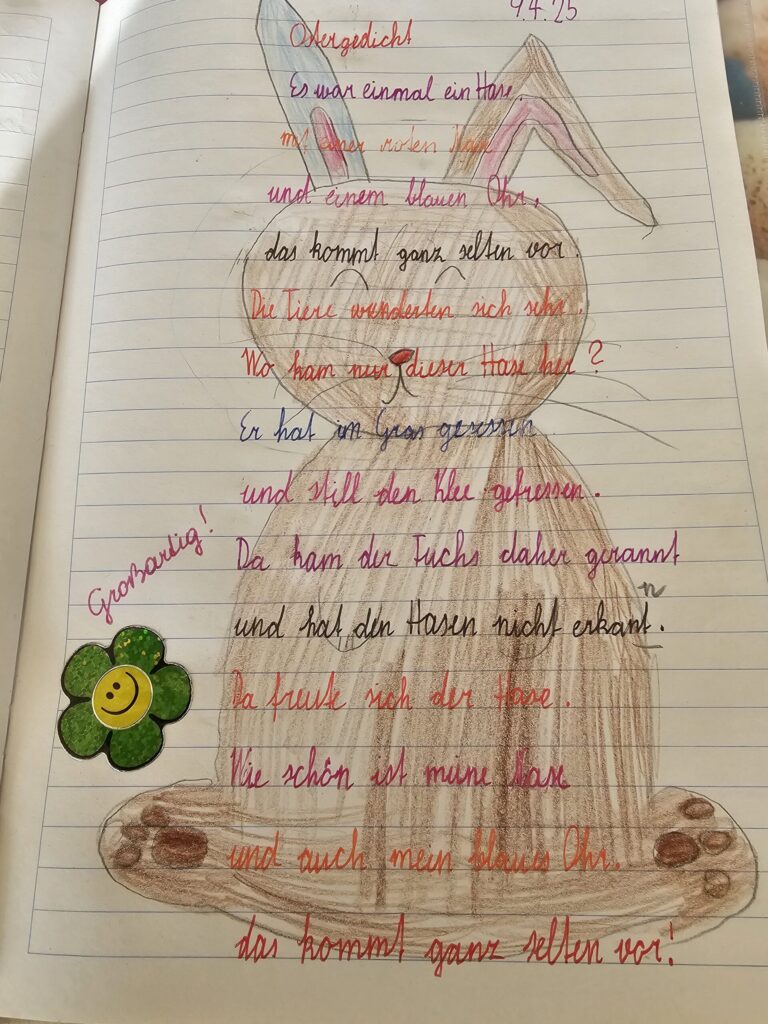 9.4.25
Ostergedicht
Es war einmal ein Hase,
mit einer roten Nase
und einem blauen Ohr,
das kommt ganz selten vor.
Die Tiere wunderten sich sehr.
Wo kam nur dieser Hase her?
Er hat im Gras gesessen
und still den Klee gefressen.
Da kam der Fuchs daher gerannt
n
und hat den Hasen nicht erkant.
Großartig!
Da freute sich der Hase.
Wie schön ist meine Nase
und auch mein blaues Ohr.
das kommt ganz selten vor!